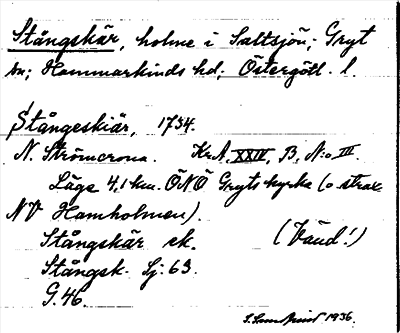 Stångskär, holme i Saltsjön; Gryt
sn; Hammarkinds hd; Östergötl. l.
Stångeskiär, 1734.
N. Strömcrona. Kr.A. XXIV, B, N:o III.
Läge 4,1 km. ÖNÖ Gryts kyrka (o strax
NV Hamholmen).
Stångskär ek. (Vänd!)
Stångsk. Sj. 63.
G. 46.
1936.